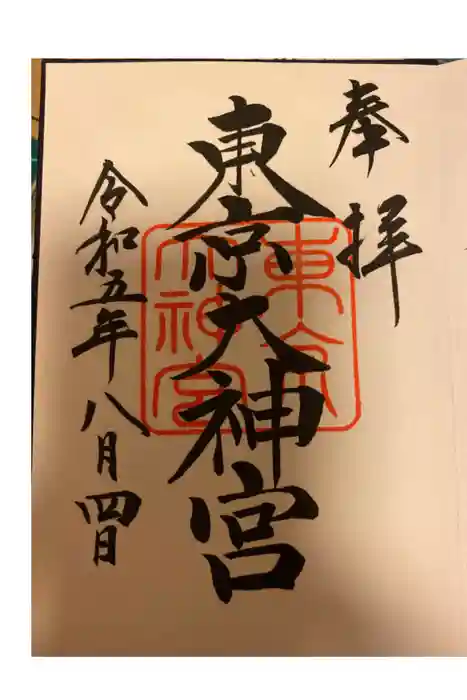 奉拝
東京大神宮
東京大神宮
令和五年八月四日